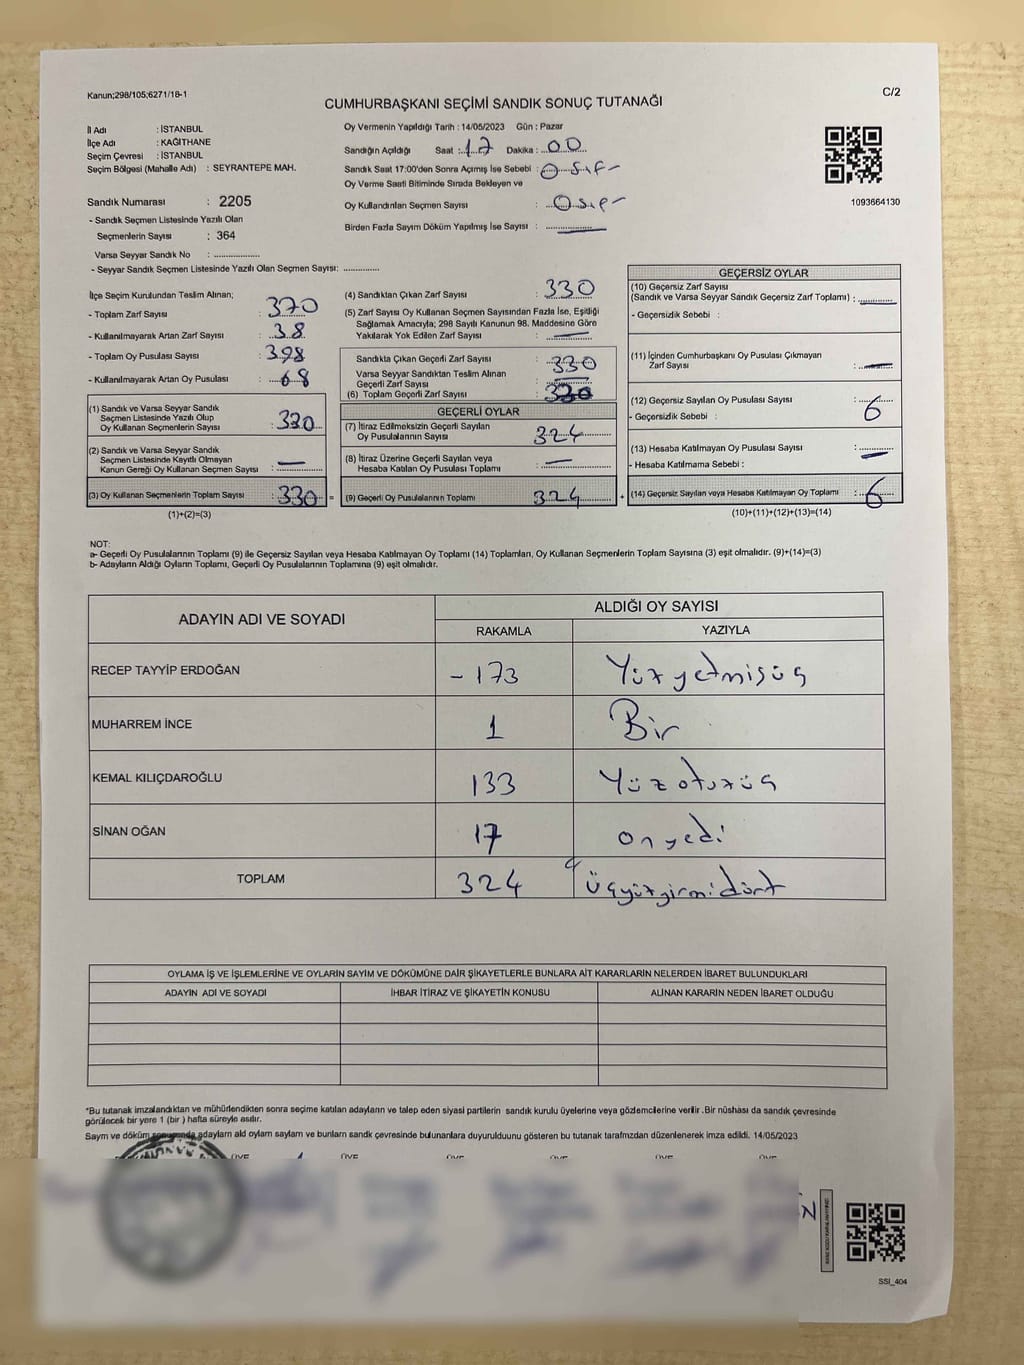 Kanun;298/105;6271/18-1
C/2
CUMHURBAŞKANI SEÇİMİ SANDIK SONUÇ TUTANAĞI
İl Adı : İSTANBUL
İlçe Adı : KAĞITHANE
Seçim Çevresi : İSTANBUL
Seçim Bölgesi (Mahalle Adı) : SEYRANTEPE MAH.
Sandık Numarası : 2205
- Sandık Seçmen Listesinde Yazılı Olan
Seçmenlerin Sayısı : 364
Varsa Seyyar Sandık No : ................
- Seyyar Sandık Seçmen Listesinde Yazılı Olan Seçmen Sayısı: .............
Oy Vermenin Yapıldığı Tarih : 14/05/2023 Gün : Pazar
Sandığın Açıldığı Saat : 17 Dakika : 00
Sandık Saat 17:00'den Sonra Açımış İse Sebebi : 0 sıfır
Oy Verme Saati Bitiminde Sırada Bekleyen ve
Oy Kullandırılan Seçmen Sayısı : 0 sıfır
Birden Fazla Sayım Döküm Yapılmış İse Sayısı :
1093664130
İlçe Seçim Kurulundan Teslim Alınan;
- Toplam Zarf Sayısı : 370
- Kullanılmayarak Artan Zarf Sayısı : 38
- Toplam Oy Pusulası Sayısı : 398
- Kullanılmayarak Artan Oy Pusulası : 68
(1) Sandık ve Varsa Seyyar Sandık
Seçmen Listesinde Yazılı Olup
Oy Kullanan Seçmenlerin Sayısı : 330
(2) Sandık ve Varsa Seyyar Sandık
Seçmen Listesinde Kayıtlı Olmayan
Kanun Gereği Oy Kullanan Seçmen Sayısı : —
(3) Oy Kullanan Seçmenlerin Toplam Sayısı : 330 =
(1)+(2)=(3)
(4) Sandıktan Çıkan Zarf Sayısı : 330
(5) Zarf Sayısı Oy Kullanan Seçmen Sayısından Fazla İse, Eşitliği
Sağlamak Amacıyla; 298 Sayılı Kanunun 98. Maddesine Göre
Yakılarak Yok Edilen Zarf Sayısı : —
Sandıkta Çıkan Geçerli Zarf Sayısı : 330
Varsa Seyyar Sandıktan Teslim Alınan
Geçerli Zarf Sayısı : —
(6) Toplam Geçerli Zarf Sayısı : 330
GEÇERLİ OYLAR
(7) İtiraz Edilmeksizin Geçerli Sayılan
Oy Pusulalarının Sayısı : 324
(8) İtiraz Üzerine Geçerli Sayılan veya
Hesaba Katılan Oy Pusulası Toplamı : —
(9) Geçerli Oy Pusulalarının Toplamı : 324 +
GEÇERSİZ OYLAR
(10) Geçersiz Zarf Sayısı
(Sandık ve Varsa Seyyar Sandık Geçersiz Zarf Toplamı) : —
- Geçersizlik Sebebi :
(11) İçinden Cumhurbaşkanı Oy Pusulası Çıkmayan
Zarf Sayısı : —
(12) Geçersiz Sayılan Oy Pusulası Sayısı : 6
- Geçersizlik Sebebi :
(13) Hesaba Katılmayan Oy Pusulası Sayısı : —
- Hesaba Katılmama Sebebi :
(14) Geçersiz Sayılan veya Hesaba Katılmayan Oy Toplamı : 6
(10)+(11)+(12)+(13)=(14)
NOT:
a- Geçerli Oy Pusulalarının Toplamı (9) ile Geçersiz Sayılan veya Hesaba Katılmayan Oy Toplamı (14) Toplamları, Oy Kullanan Seçmenlerin Toplam Sayısına (3) eşit olmalıdır. (9)+(14)=(3)
b- Adayların Aldığı Oyların Toplamı, Geçerli Oy Pusulalarının Toplamına (9) eşit olmalıdır.
ADAYIN ADI VE SOYADI ALDIĞI OY SAYISI
RAKAMLA YAZIYLA
RECEP TAYYİP ERDOĞAN - 173 Yüz yetmişüç
MUHARREM İNCE 1 Bir
KEMAL KILIÇDAROĞLU 133 Yüz otuzüç
SİNAN OĞAN 17 on yedi
TOPLAM 324 Üçyüzyirmidört
OYLAMA İŞ VE İŞLEMLERİNE VE OYLARIN SAYIM VE DÖKÜMÜNE DAİR ŞİKAYETLERLE BUNLARA AİT KARARLARIN NELERDEN İBARET BULUNDUKLARI
ADAYIN ADI VE SOYADI İHBAR İTİRAZ VE ŞİKAYETİN KONUSU ALINAN KARARIN NEDEN İBARET OLDUĞU
*Bu tutanak imzalandıktan ve mühürlendikten sonra seçime katılan adayların ve talep eden siyasi partilerin sandık kurulu üyelerine veya gözlemcilerine verilir .Bir nüshası da sandık çevresinde
görülecek bir yere 1 (bir ) hafta süreyle asılır.
Sayım ve döküm sonucunda adayların ald oyların sayların ve bunların sandk çevresinde bulunanlara duyurulduunu gösteren bu tutanak tarafmzdan düzenlenerek imza edildi. 14/05/2023
ÜYE ÜYE ÜYE ÜYE ÜYE ÜYE
SSI_404